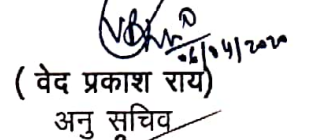 06/04/2020
( वेद प्रकाश राय)
अनु सचिव